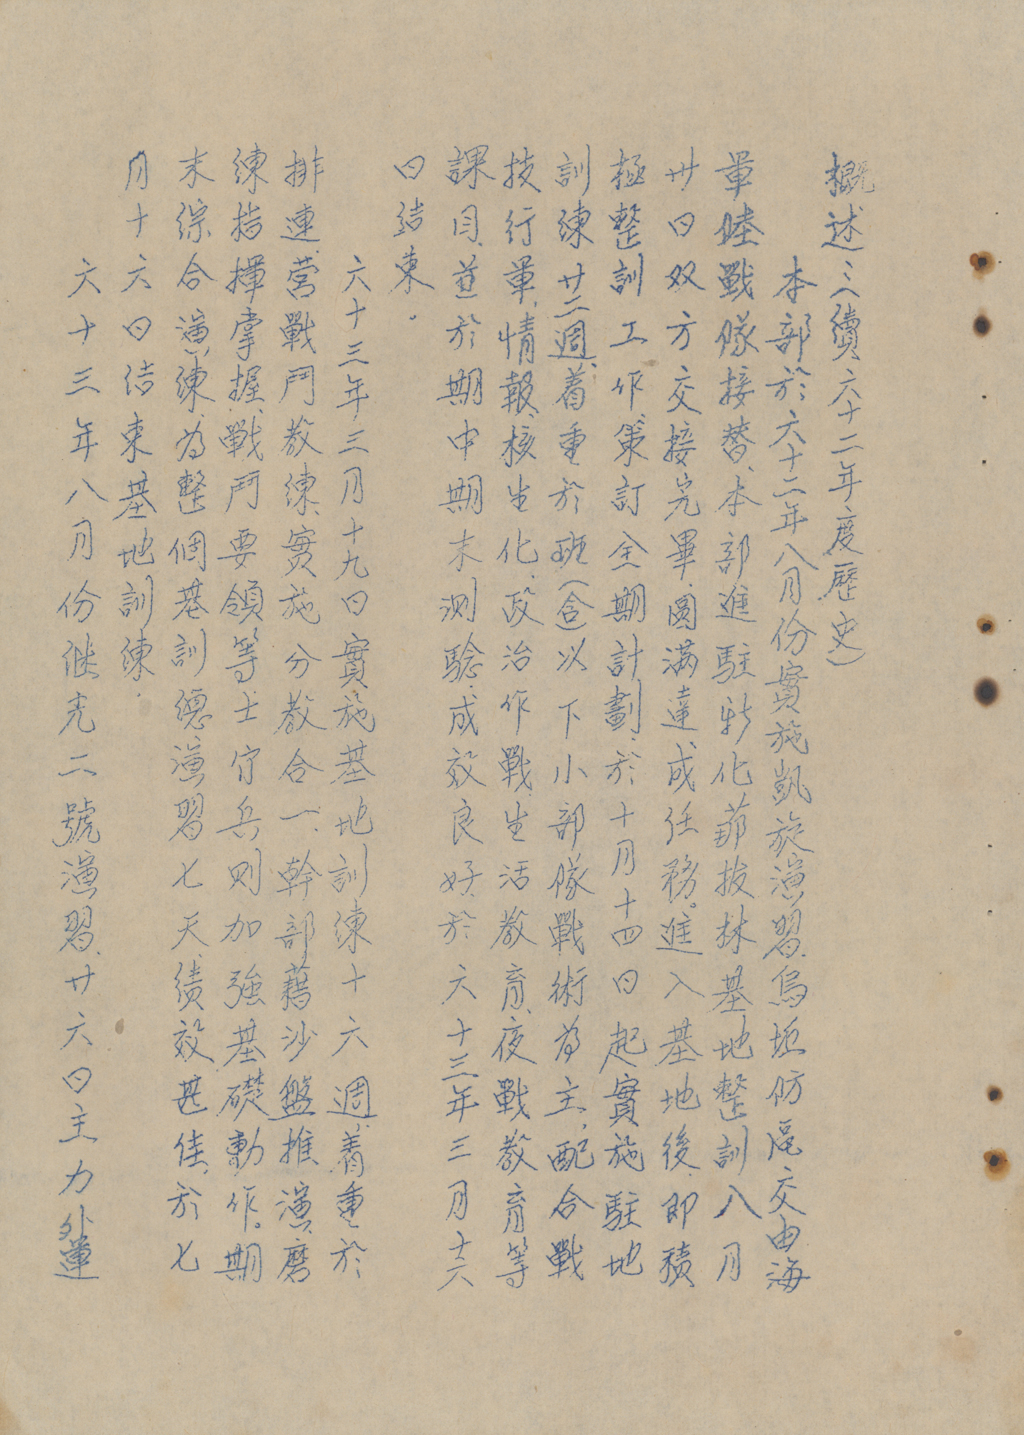 概述：（續六十二年度歷史）
本部於六十二年八月份實施凱旋演習、烏坵防區交由海
軍陸戰隊接替、本部進駐新化、那拔林基地整訓八月
廿日双方交接完畢、圓滿達成任務。進入基地後、即積
極整訓工作、策訂全期計劃、於十月十四日起實施駐地
訓練廿二週、着重於班（含）以下小部隊戰術為主、配合戰
技行軍、情報、核生化、政治作戰、生活教育、夜戰教育等
課目、並於期中期末測驗、成效良好、於六十三年三月十六
日結束。
六十三年三月十九日實施基地訓練十六週、着重於
排、連、營戰鬥教練、實施分教合一、幹部藉沙盤推演、磨
練指揮掌握、戰鬥要領等、士官兵則加強基礎動作。期
末綜合演練、為整個基訓德演習七天、績效甚佳、於七
月十六日結束基地訓練。
六十三年八月份继光二號演習、廿六日主力外運